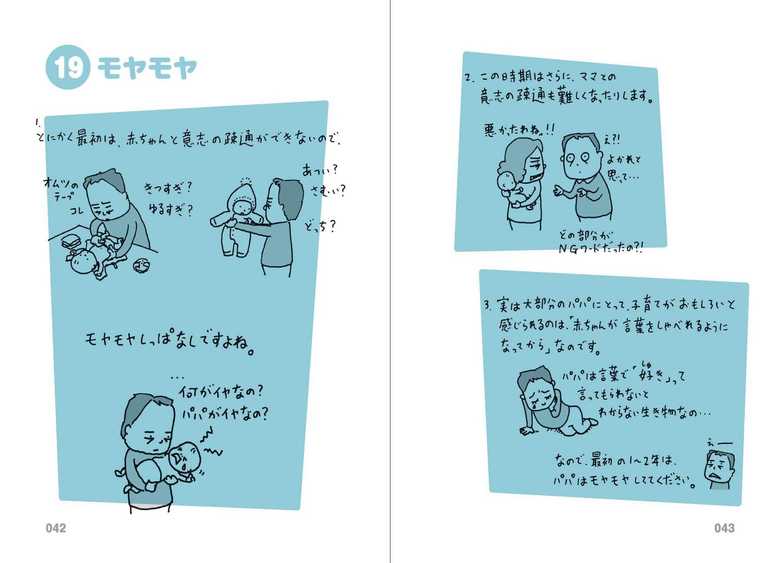 19 モヤモヤ
1.
とにかく最初は、赤ちゃんと意志の疎通ができないので、
オムツの
テープ
コレ
きつすぎ？
ゆるすぎ？
あつい？
さむい？
どっち？
モヤモヤしっぱなしですよね。
…
何がイヤなの？
パパがイヤなの？
042
2. この時期はさらに、ママとの
意志の疎通も難しくなったりします。
悪かったわね。!!
え?!
よかれと
思って…
どの部分が
NGワードだったの?!
3. 実は大部分のパパにとって、子育てがおもしろいと
感じられるのは、「赤ちゃんが言葉をしゃべれるように
なってから」なのです。
パパは言葉で「好き」って
しゅ
言ってもらわないと
わからない生き物なの…
えー
なので、最初の1〜2年は、
パパはモヤモヤしててください。
043